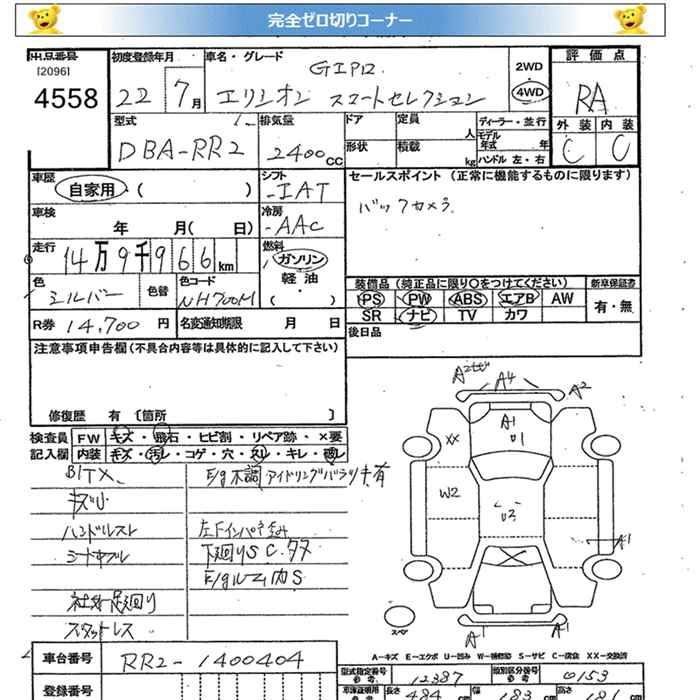 完全ゼロ切りコーナー
出品番号 初度登録年月 車名・グレード 評価点
[2096] Gエアロ 2WD
4558 22 7月 エリシオン スマートセレクション 4WD RA
型式 排気量 ドア 定員 人 ディーラー・並行 外装 内装
DBA-RR2 2400cc 形状 積載 kg モデル年式 年 C C
ハンドル 左・右
車歴 シフト セールスポイント (正常に機能するものに限ります)
自家用・( ) IAT バックカメラ
車検 年 月( 日) 冷房 AAC
走行 14万9千966km 燃料 ガソリン
色 シルバー 色替 色コード NH700M 軽油・( )
装備品 (純正品に限り○をつけてください) 新車保証書
PS PW ABS エアB AW 有・無
SR ナビ TV カワ
R券 14,700円 名変通知期限 月 日 後日品
注意事項申告欄(不具合内容等は具体的に記入して下さい)
修復歴 有 〔箇所 〕
検査員 FW キズ・飛石・ヒビ割・リペア跡・×要
記入欄 内装 キズ・汚レ・コゲ・穴・スレ・キレ・欠
E/g不調 アイドリングバラツキ有
キズ小
ハンドルスレ
下廻りSC.
スタットレス
A2 A4 A2
A1
U1
XX
W2
U2
A1
A1 A1
スペア
A-キズ E-エクボ U-凹み W-補修跡 S-サビ C-腐食 XX-交換済
車台番号 RR2-1400404
型式指定番号 12387 類別区分番号 0153
登録番号 長さ 484 幅 183 高さ 181